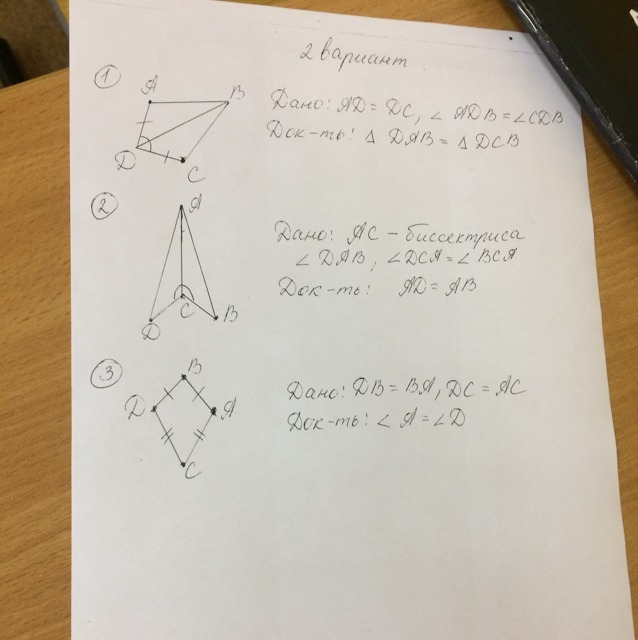 2 вариант.
1
A
B
D
C
Дано: AD = DC, ∠ ADB = ∠CDB
Док-ть: Δ DAB = Δ DCB
2
A
D
C
B
Дано: AC – биссектриса
∠ DAB, ∠DCA = ∠ BCA
Док-ть: AD = AB
3
B
D
A
C
Дано: DB = BA, DC = AC
Док-ть: ∠ A = ∠D